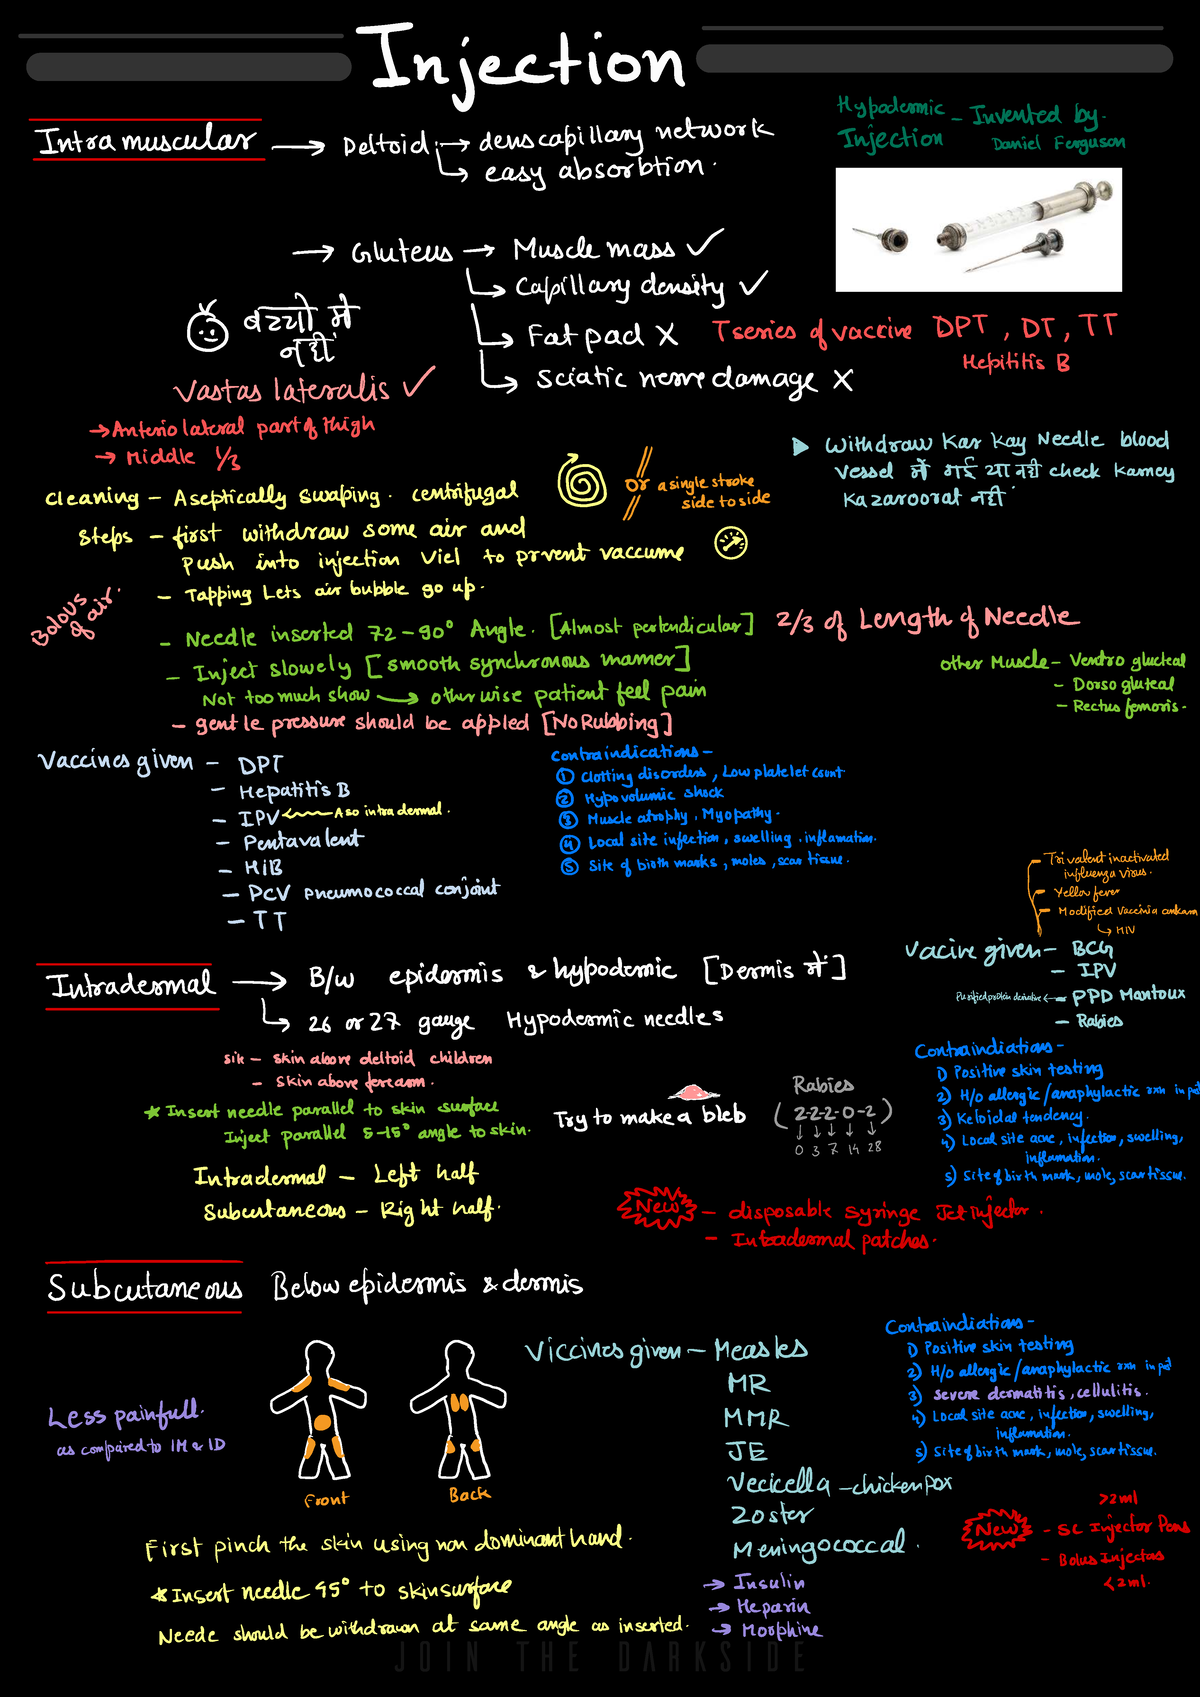 Injection
Intramuscular → Deltoid → dens capillary network
↳ easy absorbtion.
Hypodermic Injection – Invented by. Daniel Ferguson
→ Gluteus → Muscle mass ✓
↳ Capillary density ✓
↳ Fat pad X
↳ Sciatic nerve damage X
बच्चो मे
नही
Vastas lateralis ✓
→ Anterio lateral part of thigh
→ Middle 1/3
T series of vaccine DPT, DT, TT
Hepititis B
▶ Withdraw Kar Kay Needle blood
vessel में गई या नही check karney
ka zaroorat नही
Cleaning – Aseptically swaping. centrifugal
or a single stroke
side to side
Steps – first withdraw some air and
push into injection viel to prvent vaccume
– Tapping Lets air bubble go up.
Bolous of air.
– Needle inserted 72-90° Angle. [Almost perpendicular] 2/3 of Length of Needle
– Inject slowely [smooth synchronous manner]
Not too much show → otherwise patient feel pain
– gentle pressure should be appled [No Rubbing]
other Muscle – Ventro glucteal
– Dorso gluteal
– Rectus femoris.
Vaccines given – DPT
– Hepatitis B
– IPV ← Aso intradermal.
– Pentavalent
– HiB
– PCV pneumococcal conjoint
– TT
Contraindications –
① Clotting disorders, Low platelet count
② Hypovolumic shock
③ Muscle atrophy, Myopathy.
④ Local site infection, swelling, inflamation.
⑤ Site of birth marks, moles, scar tissue.
– Trivalent inactivated
influenza virus.
– Yellow fever
– Modified Vaccinia ankara
↳ HIV
Vacine given – BCG
– IPV
Purified protein derivative ← PPD Mantoux
– Rabies
Intradermal → B/w epidermis & hypodermic [Dermis में]
↳ 26 or 27 gauge Hypodermic needles
Site – skin above deltoid children
– skin above forearm.
* Insert needle parallel to skin surface
Inject parallel 5-15° angle to skin.
Try to make a bleb
Rabies
(2-2-2-0-2)
↓ ↓ ↓ ↓ ↓
0 3 7 14 28
Contraindiations –
1) Positive skin testing
2) H/o allergic/anaphylactic rxn in pat
3) Keloidal tendency.
4) Local site acne, infection, swelling,
inflamation.
5) Site of birth mark, mole, scar tissue.
Intradermal – Left half
Subcutaneous – Right half.
New – disposable syringe Jet Injector.
– Intradermal patches.
Subcutaneous Below epidermis & dermis
Less painfull.
as compared to IM & ID
Front
Back
Viccines given – Measles
MR
MMR
JE
Vecicella – chickenpox
Zoster
Meningococcal.
→ Insulin
→ Heparin
→ Morphine
Contraindiations –
1) Positive skin testing
2) H/o allergic/anaphylactic rxn in pat
3) Severe dermatitis, cellulitis.
4) Local site acne, infection, swelling,
inflamation.
5) Site of birth mark, mole, scar tissue.
>2ml
New – SC Injector Pens
– Bolus Injectors
<2ml.
First pinch the skin using non dominant hand.
* Insert needle 45° to skin surface
Neede should be withdrawn at same angle as inserted.
JOIN THE DARKSIDE